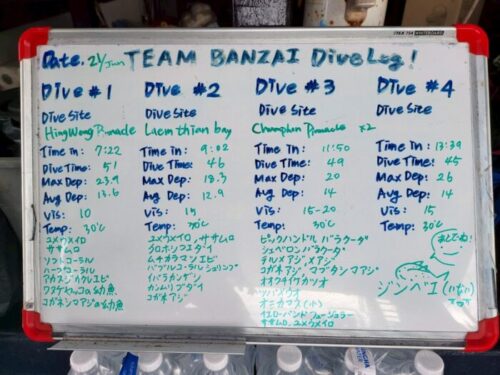 ITEM 754 WHITEBOARD
Date. 21/Jun TEAM BANZAI Dive Log!
Dive #1
Dive Site
HingWong Pinnacle
Time in: 7:22
Dive Time: 51
Max Dep: 23.9
Avg Dep: 13.6
Vis: 10
Temp: 30℃
ユメウメイロ
ササムロ
ソフトコーラル
ハードコーラル
アカスジカクレエビ
コガネシマアジの幼魚
Dive #2
Dive Site
Laem thian bay
Time in: 9:02
Dive Time: 46
Max Dep: 18.3
Avg Dep: 12.9
Vis: 15
Temp: 30℃
ユメウメイロ, ササムロ
クロホシフエダイ
ムチカラマツエビ
バブルコーラルシュリンプ
バラクーダ
カンムリブダイ
コガネアジ
Dive #3
Dive Site
Chumphon Pinnacle x2
Time in: 11:50
Dive Time: 49
Max Dep: 20
Avg Dep: 14
Vis: 15-20
Temp: 30℃
ピックハンドルバラクーダ
シェベロンバラクーダ
コガネアジ, マブタシマアジ
オオクチイケカツオ
ツバメウオ
オニカマス(小)
イエローバンドフュージュラー
ササムロ, ユメウメイロ
Dive #4
Dive Site
Time in: 13:39
Dive Time: 45
Max Dep: 26
Avg Dep: 14
Vis: 15
Temp: 30℃
ジンベエ